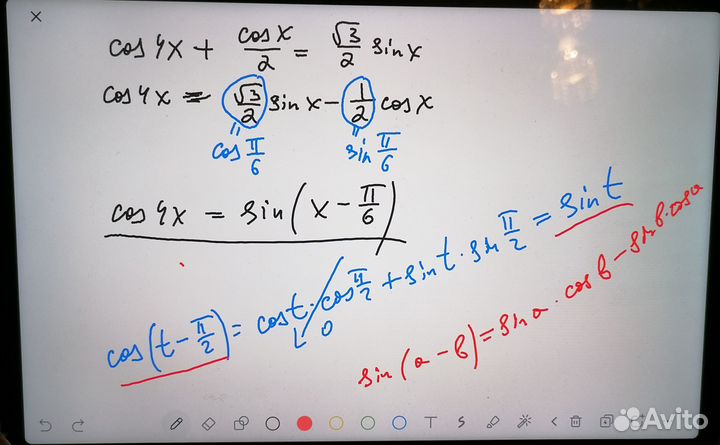 cos 4x + cosx/2 = √3/2 sin x
cos 4x = √3/2 sin x − 1/2 cos x
= =
cos π/6 sin π/6
cos 4x = sin(x − π/6)
cos(t − π/2) = cos t · cos π/2 + sin t · sin π/2 = sin t
0
sin(a − b) = sin a · cos b − sin b · cos a
T
Avito